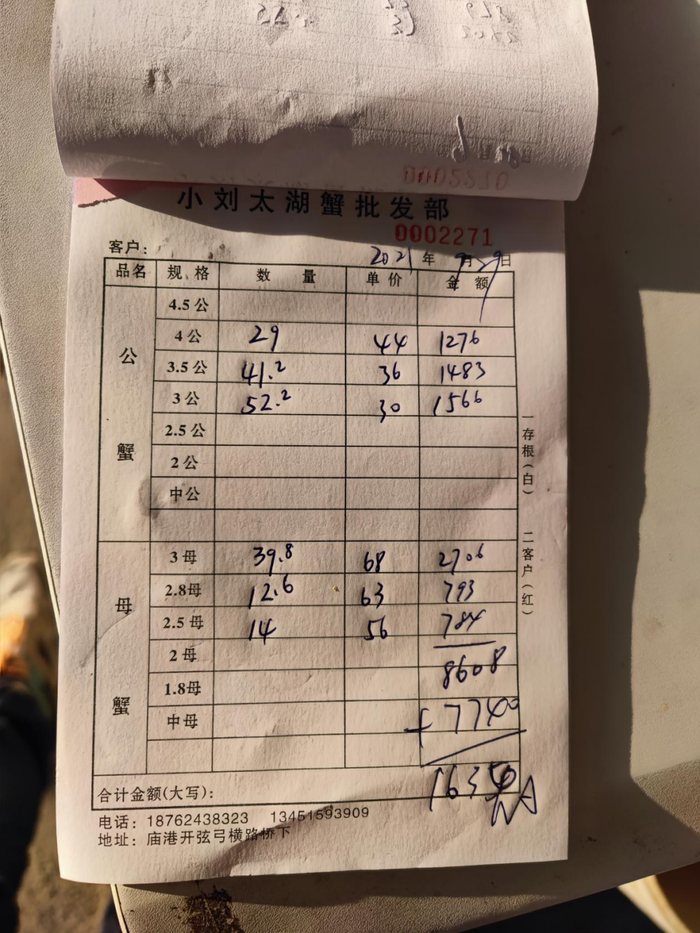 0002270
小刘太湖蟹批发部
0002271
客户: 2021 年 9 月 29 日
品名 规格 数量 单价 金额
公蟹
4.5公
4公 29 44 1276
3.5公 41.2 36 1483
3公 52.2 30 1566
2.5公
2公
中公
母蟹
3母 39.8 68 2706
2.8母 12.6 63 793
2.5母 14 56 784
2母 8608
1.8母
中母 +7740
合计金额(大写):
电话: 18762438323 13451593909
地址: 庙港开弦弓横路桥下
一存根(白)
二客户(红)